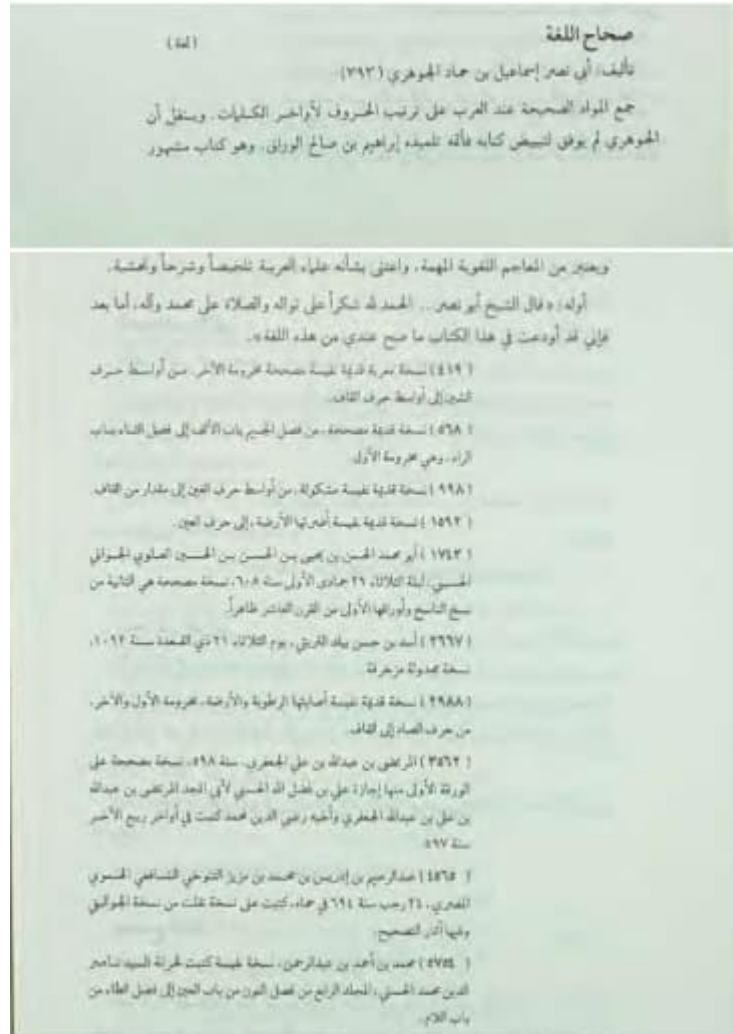 صحاح اللغة (لغة)
تأليف: أبي نصر إسماعيل بن حماد الجوهري (٣٩٣)
جمع المواد الصحيحة عند العرب على ترتيب الحروف لأواخر الكلمات. وينقل أن
الجوهري لم يوفق لتبييض كتابه فأتمه تلميذه إبراهيم بن صالح الوراق. وهو كتاب مشهور
ويعتبر من المعاجم اللغوية المهمة، واعتنى بشأنه علماء العربية تلخيصاً وشرحاً وتحشية.
أوله: «قال الشيخ أبو نصر .. الحمد لله شكراً على نواله والصلاة على محمد وآله، أما بعد
فإني قد أودعت في هذا الكتاب ما صح عندي من هذه اللغة».
( ٤١٩ ) نسخة معربة قديمة نفيسة مصححة مخرومة الآخر. من أواسط حرف
الشين إلى أواسط حرف القاف.
( ٥٦٨ ) نسخة قديمة مصححة، من فصل الجيم باب الألف إلى فصل التاء باب
الراء، وهي مخرومة الأول.
( ٩٩٨ ) نسخة قديمة نفيسة مشكولة، من أواسط حرف العين إلى مقدار من القاف.
( ١٥٩٢ ) نسخة قديمة نفيسة أضرتها الأرضة، إلى حرف العين.
( ١٧٤٣ ) أبو محمد الحسن بن يحيى بن الحسن بن الحسين العلوي الجواني
الحسيني، ليلة الثلاثاء ٢٦ جمادى الأولى سنة ٦٠٨، نسخة مصححة هي الثانية من
نسخ الناسخ وأوراقها الأولى من القرن العاشر ظاهراً.
( ٢٦٦٧ ) أسد بن حسن بيك القريني، يوم الثلاثاء ٢١ ذي القعدة سنة ١٠٩٢،
نسخة مجدولة مزخرفة.
( ٢٩٨٨ ) نسخة قديمة نفيسة أصابتها الرطوبة والأرضة، مخرومة الأول والآخر،
من حرف الصاد إلى القاف.
( ٣٥٦٢ ) المرتضى بن عبدالله بن علي الجعفري، سنة ٥٩٨، نسخة مصححة على
الورقة الأولى منها إجازة علي بن فضل الله الحسني لأبي المجد المرتضى بن عبدالله
بن علي بن عبدالله الجعفري وأخيه رضي الدين محمد كتبت في أواخر ربيع الآخر
سنة ٥٩٧.
( ٤٥٦٥ ) عبدالرحيم بن إدريس بن محمد بن مزيز التنوخي الشافعي الحموي
المصري، ٢٤ رجب سنة ٦٩٤ في حماه، كتبت على نسخة نقلت من نسخة الجواليقي
وفيها آثار التصحيح.
( ٤٧٥٤ ) محمد بن أحمد بن عبدالرحمن، نسخة نفيسة كتبت لخزانة السيد ناصر
الدين محمد الحسني، المجلد الرابع من فصل النون من باب العين إلى فصل الطاء من
باب اللام.